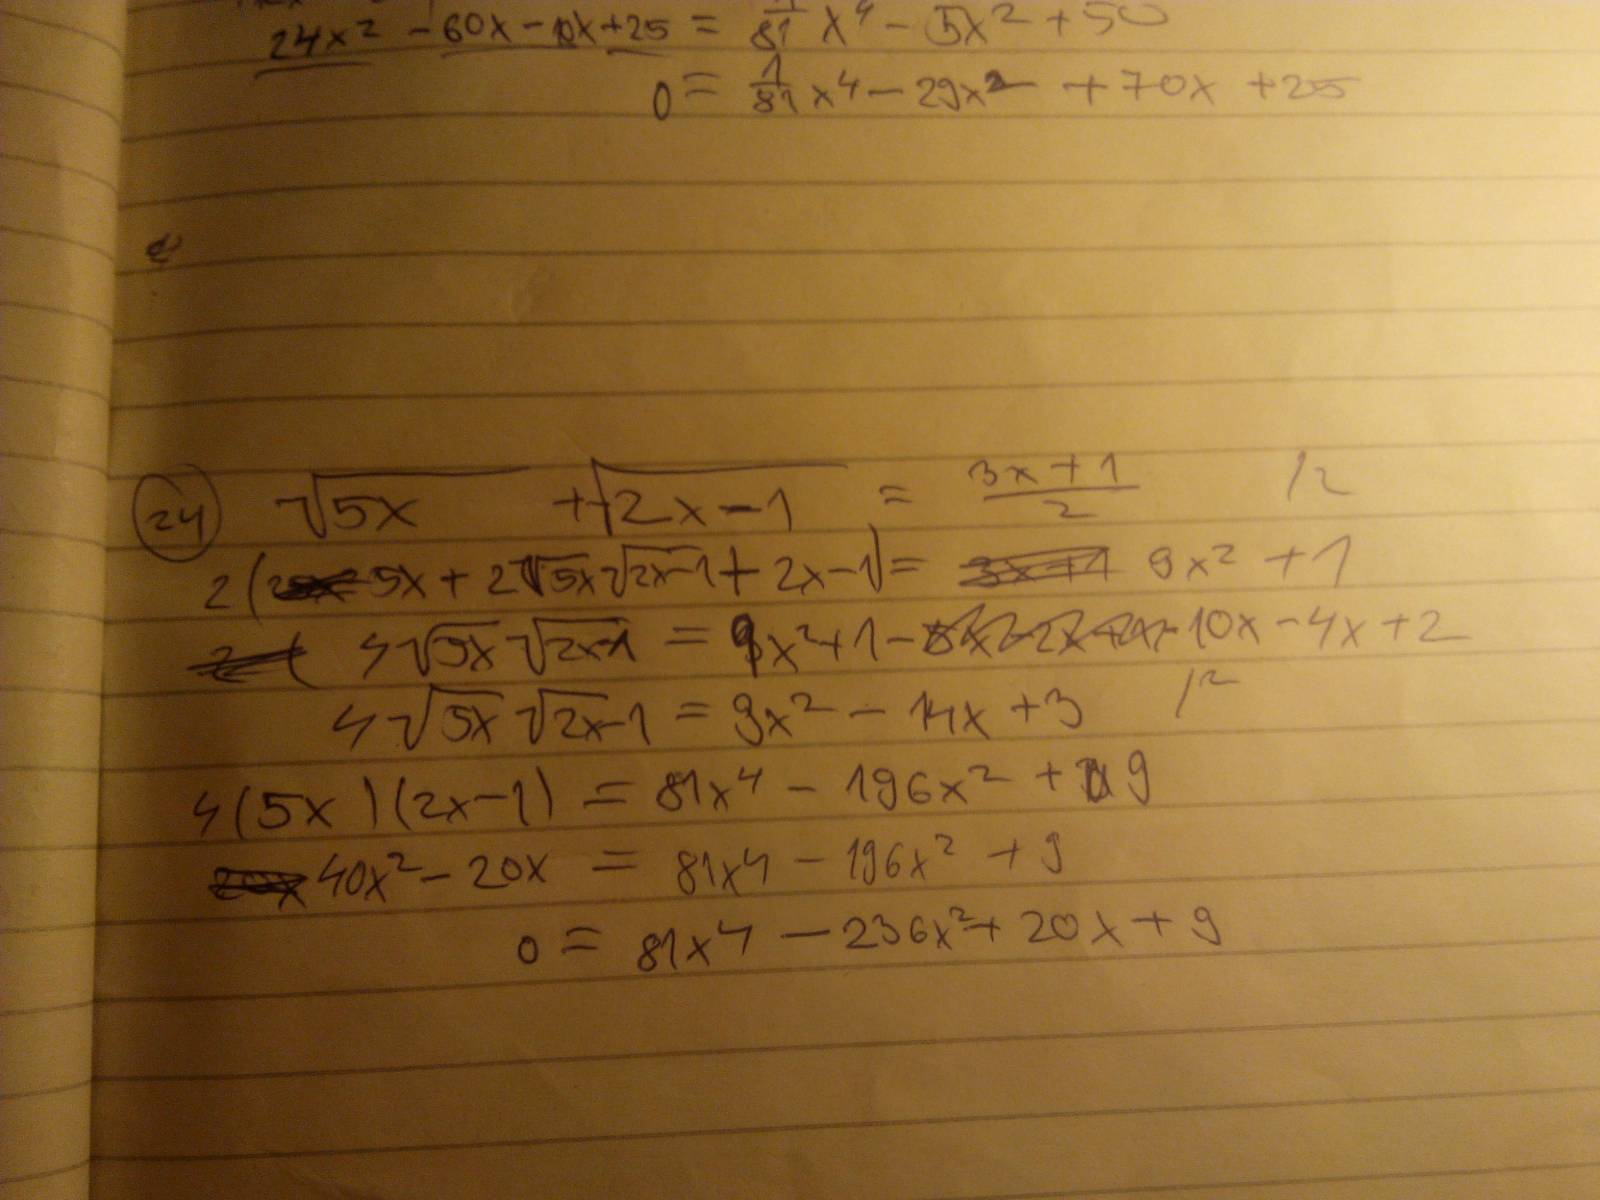 24x² - 60x - 10x + 25 = 1/81 x⁴ - 5x² + 50
0 = 1/81 x⁴ - 29x² + 70x + 25
24 √5x + √2x-1 = 3x+1/2 /2
2(5x + 2√5x √2x-1 + 2x-1) = 3x+1 9x² + 1
4√5x √2x-1 = 9x² + 1 - 10x - 4x + 2
4√5x √2x-1 = 9x² - 14x + 3 /2
4(5x)(2x-1) = 81x⁴ - 196x² + 9
40x² - 20x = 81x⁴ - 196x² + 9
0 = 81x⁴ - 236x² + 20x + 9